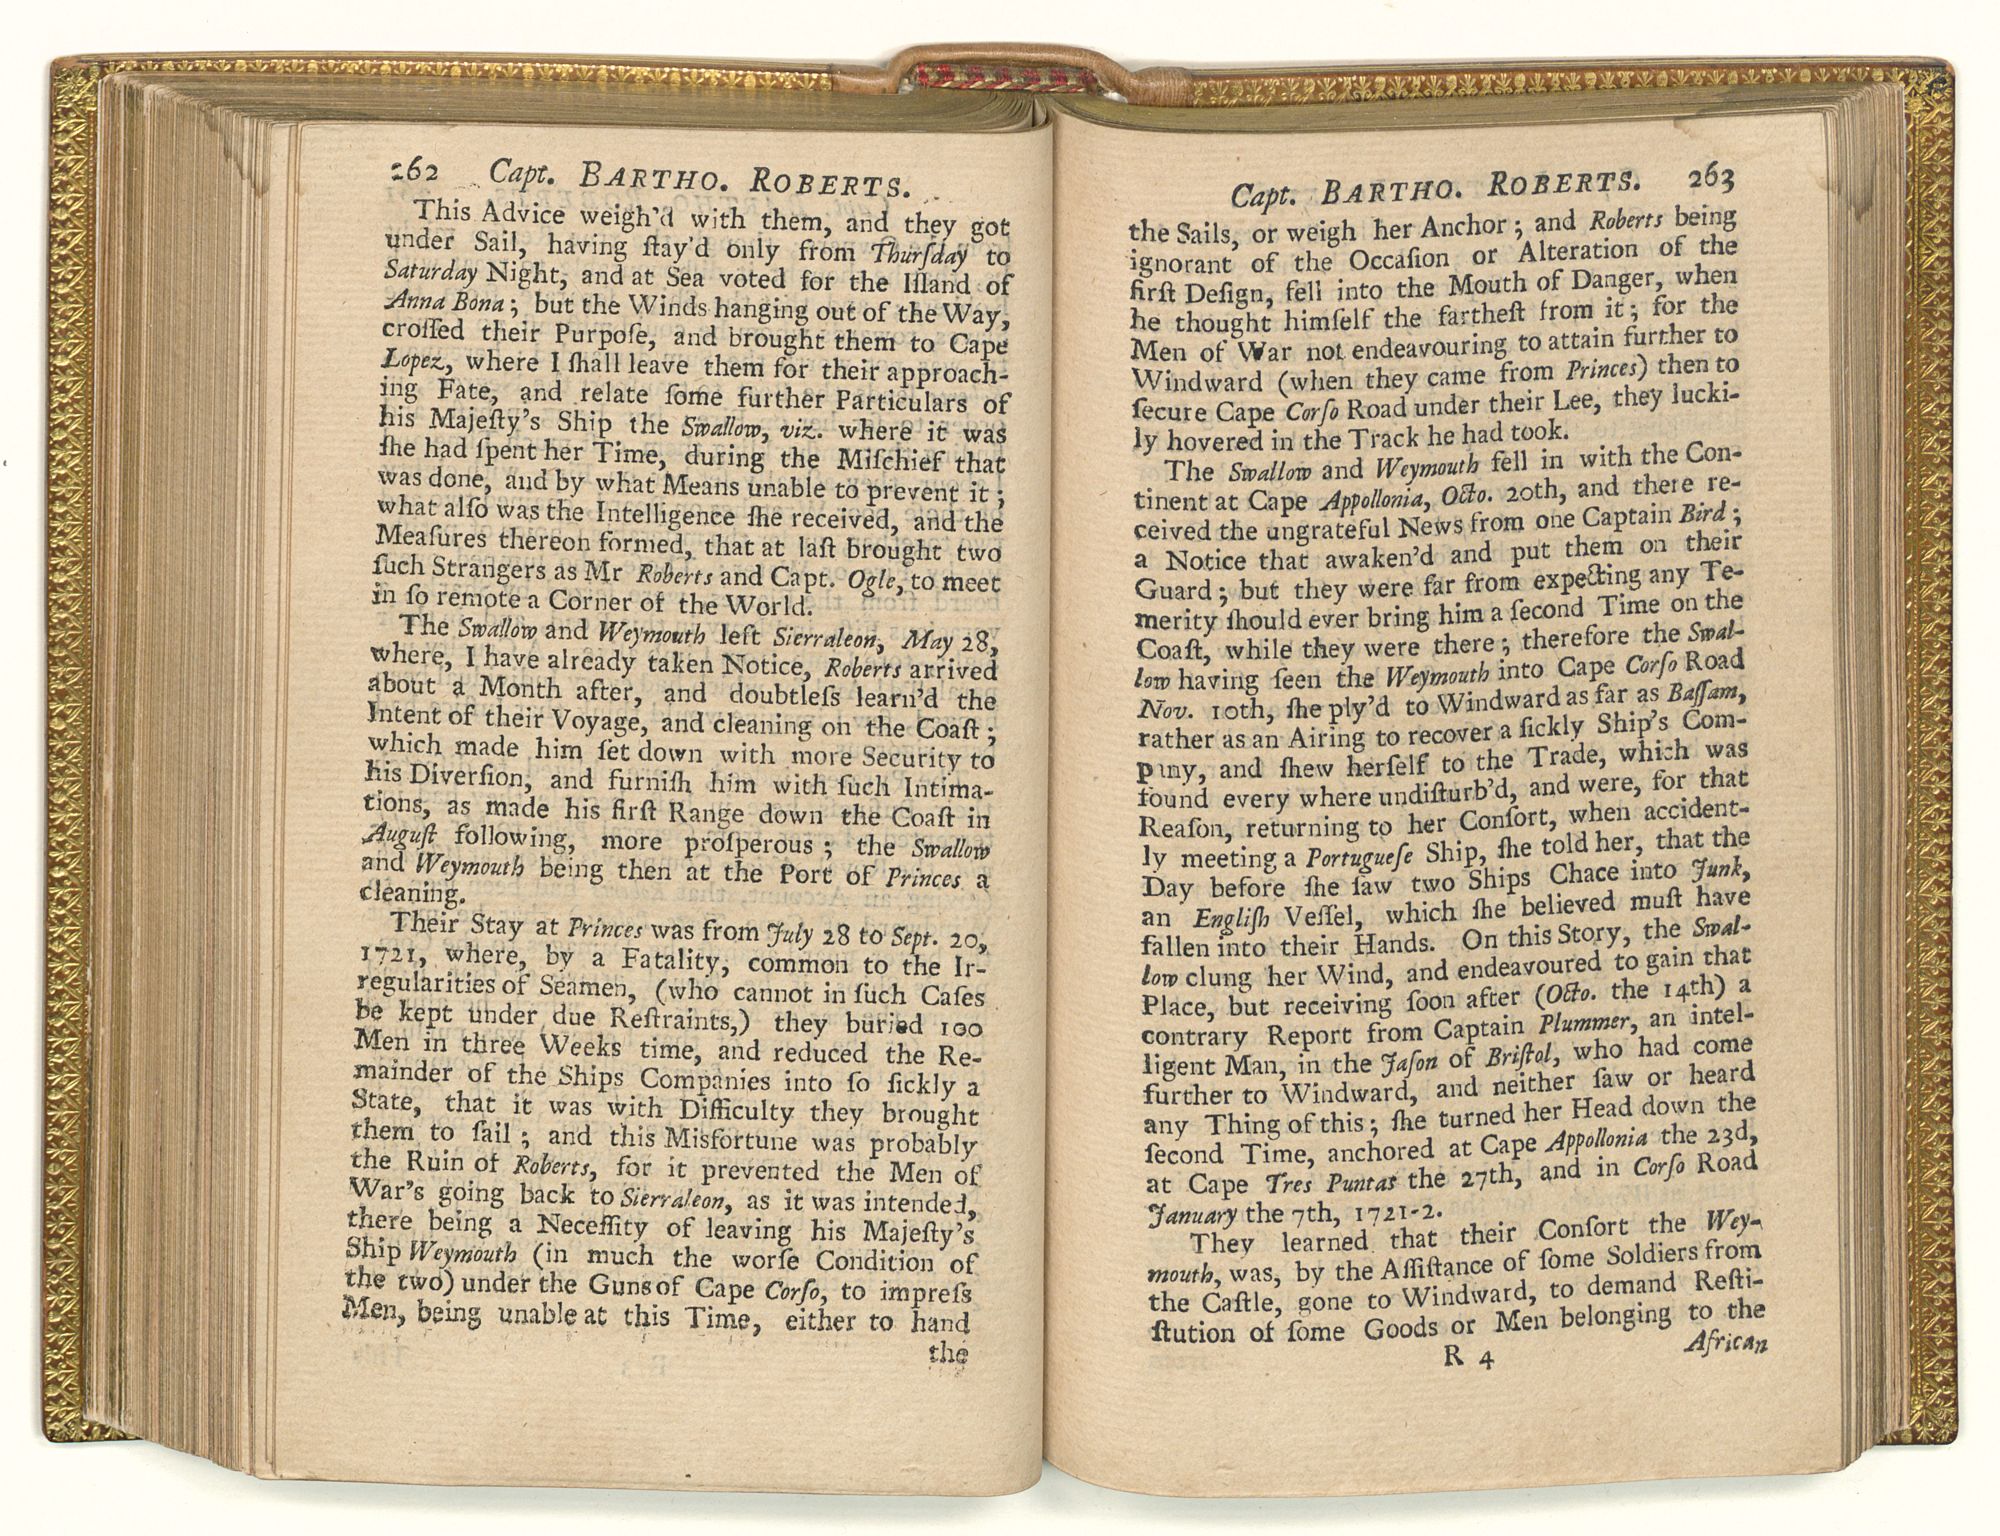 262 Capt. BARTHO. ROBERTS.
This Advice weigh'd with them, and they got
under Sail, having ſtay'd only from Thurſday to
Saturday Night, and at Sea voted for the Iſland of
Anna Bona; but the Winds hanging out of the Way,
croſſed their Purpoſe, and brought them to Cape
Lopez, where I ſhall leave them for their approach-
ing Fate, and relate ſome further Particulars of
his Majeſty's Ship the Swallow, viz. where it was
ſhe had ſpent her Time, during the Miſchief that
was done, and by what Means unable to prevent it;
what alſo was the Intelligence ſhe received, and the
Meaſures thereon formed, that at laſt brought two
ſuch Strangers as Mr Roberts and Capt. Ogle, to meet
in ſo remote a Corner of the World.
The Swallow and Weymouth left Sierraleon, May 28,
where, I have already taken Notice, Roberts arrived
about a Month after, and doubtleſs learn'd the
Intent of their Voyage, and cleaning on the Coaſt;
which made him ſet down with more Security to
his Diverſion, and furniſh him with ſuch Intima-
tions, as made his firſt Range down the Coaſt in
Auguſt following, more proſperous; the Swallow
and Weymouth being then at the Port of Princes a
cleaning.
Their Stay at Princes was from July 28 to Sept. 20,
1721, where, by a Fatality, common to the Ir-
regularities of Seamen, (who cannot in ſuch Caſes
be kept under due Reſtraints,) they buried 100
Men in three Weeks time, and reduced the Re-
mainder of the Ships Companies into ſo ſickly a
State, that it was with Difficulty they brought
them to ſail; and this Misfortune was probably
the Ruin of Roberts, for it prevented the Men of
War's going back to Sierraleon, as it was intended,
there being a Neceſſity of leaving his Majeſty's
Ship Weymouth (in much the worſe Condition of
the two) under the Guns of Cape Corſo, to impreſs
Men, being unable at this Time, either to hand
the
Capt. BARTHO. ROBERTS. 263
the Sails, or weigh her Anchor; and Roberts being
ignorant of the Occaſion or Alteration of the
firſt Deſign, fell into the Mouth of Danger, when
he thought himſelf the fartheſt from it; for the
Men of War not endeavouring to attain further to
Windward (when they came from Princes) then to
ſecure Cape Corſo Road under their Lee, they lucki-
ly hovered in the Track he had took.
The Swallow and Weymouth fell in with the Con-
tinent at Cape Appollonia, Octo. 20th, and there re-
ceived the ungrateful News from one Captain Bird;
a Notice that awaken'd and put them on their
Guard; but they were far from expecting any Te-
merity ſhould ever bring him a ſecond Time on the
Coaſt, while they were there; therefore the Swal-
low having ſeen the Weymouth into Cape Corſo Road
Nov. 10th, ſhe ply'd to Windward as far as Baſſam,
rather as an Airing to recover a ſickly Ship's Com-
pany, and ſhew herſelf to the Trade, which was
found every where undiſturb'd, and were, for that
Reaſon, returning to her Conſort, when accident-
ly meeting a Portugueſe Ship, ſhe told her, that the
Day before ſhe ſaw two Ships Chace into Junk,
an Engliſh Veſſel, which ſhe believed muſt have
fallen into their Hands. On this Story, the Swal-
low clung her Wind, and endeavoured to gain that
Place, but receiving ſoon after (Octo. the 14th) a
contrary Report from Captain Plummer, an intel-
ligent Man, in the Jaſon of Briſtol, who had come
further to Windward, and neither ſaw or heard
any Thing of this; ſhe turned her Head down the
ſecond Time, anchored at Cape Appollonia the 23d,
at Cape Tres Puntas the 27th, and in Corſo Road
January the 7th, 1721-2.
They learned that their Conſort the Wey-
mouth, was, by the Aſſiſtance of ſome Soldiers from
the Caſtle, gone to Windward, to demand Reſti-
ſtution of ſome Goods or Men belonging to the
R 4 African